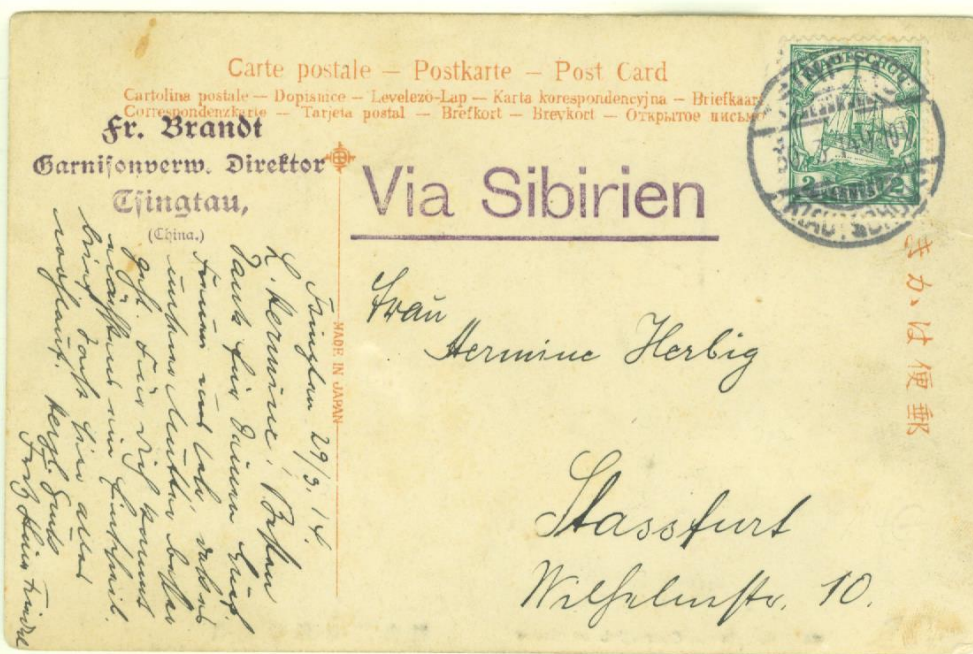 Carte postale — Postkarte — Post Card
Cartolina postale — Dopisnice — Levelező-Lap — Karta korespondencyjna — Briefkaar
Correspondenzkarte — Tarjeta postal — Brefkort — Brevkort — Открытое письмо
Fr. Brandt
Garnisonverw. Direktor
Tsingtau,
(China.)
Via Sibirien
KIAUTSCHOU
2 2
郵便はかき
MADE IN JAPAN
Frau
Hermine Herbig
Stassfurt
Wilhelmstr. 10.
Tsingtau 29/3. 14.
L. Hermine! Besten
Dank für Deinen
geht. Für Dich kommt
nächstens ein
Brief. Sonst hier alles
wohlauf. Herzl.